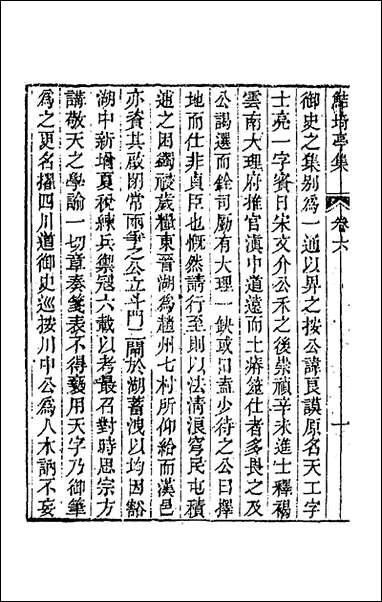 鮚埼亭集 卷六 十
御史之集別爲一通以畀之按公諱良謨原名天工字
士亮一字賓日宋文介公禾之後崇禎辛未進士釋褐
雲南大理府推官滇中道遠而土瘠筮仕者多畏之及
公謁選而銓司勵有大理一缺或曰盍少待之公曰擇
地而仕非貞臣也慨然請行至則以法清浪穹民屯積
逋之困蠲祲歲糧東晉湖爲趙州七村所仰給而漢邑
亦資其啟閉常兩爭之公立斗門二關於湖蓄洩以均因豁
湖中新增夏稅練兵禦寇六載以考最召對時思宗方
講敬天之學諭一切章奏箋表不得褻用天字乃御筆
爲之更名擢四川道御史巡按川中公爲人木訥不妄